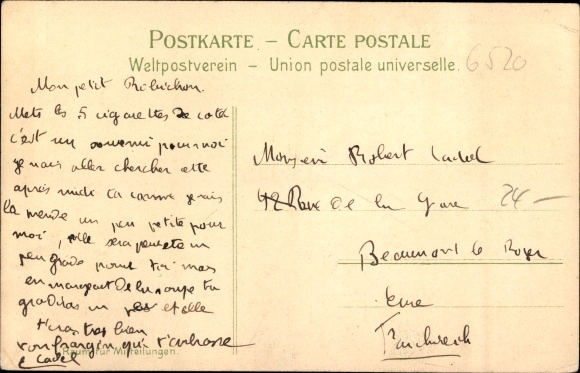 POSTKARTE – CARTE POSTALE
Weltpostverein – Union postale universelle.
6520
Mon petit
Mets les 5 cigarettes de coté
c'est un souvenir pour moi
je vais aller chercher cette
après midi ta canne je vais
la prendre un peu petite pour
moi, elle sera peut un
peu grande pour toi mais
en mangeant de la soupe tu
grandiras un peu et elle
t'iras très bien
ton frangin qui t'embrasse
Cadel
Raum für Mitteilungen.
Monsieur Robert Cadel
42 Rue de la Gare
24 –
Beaumont le Roger
Eure